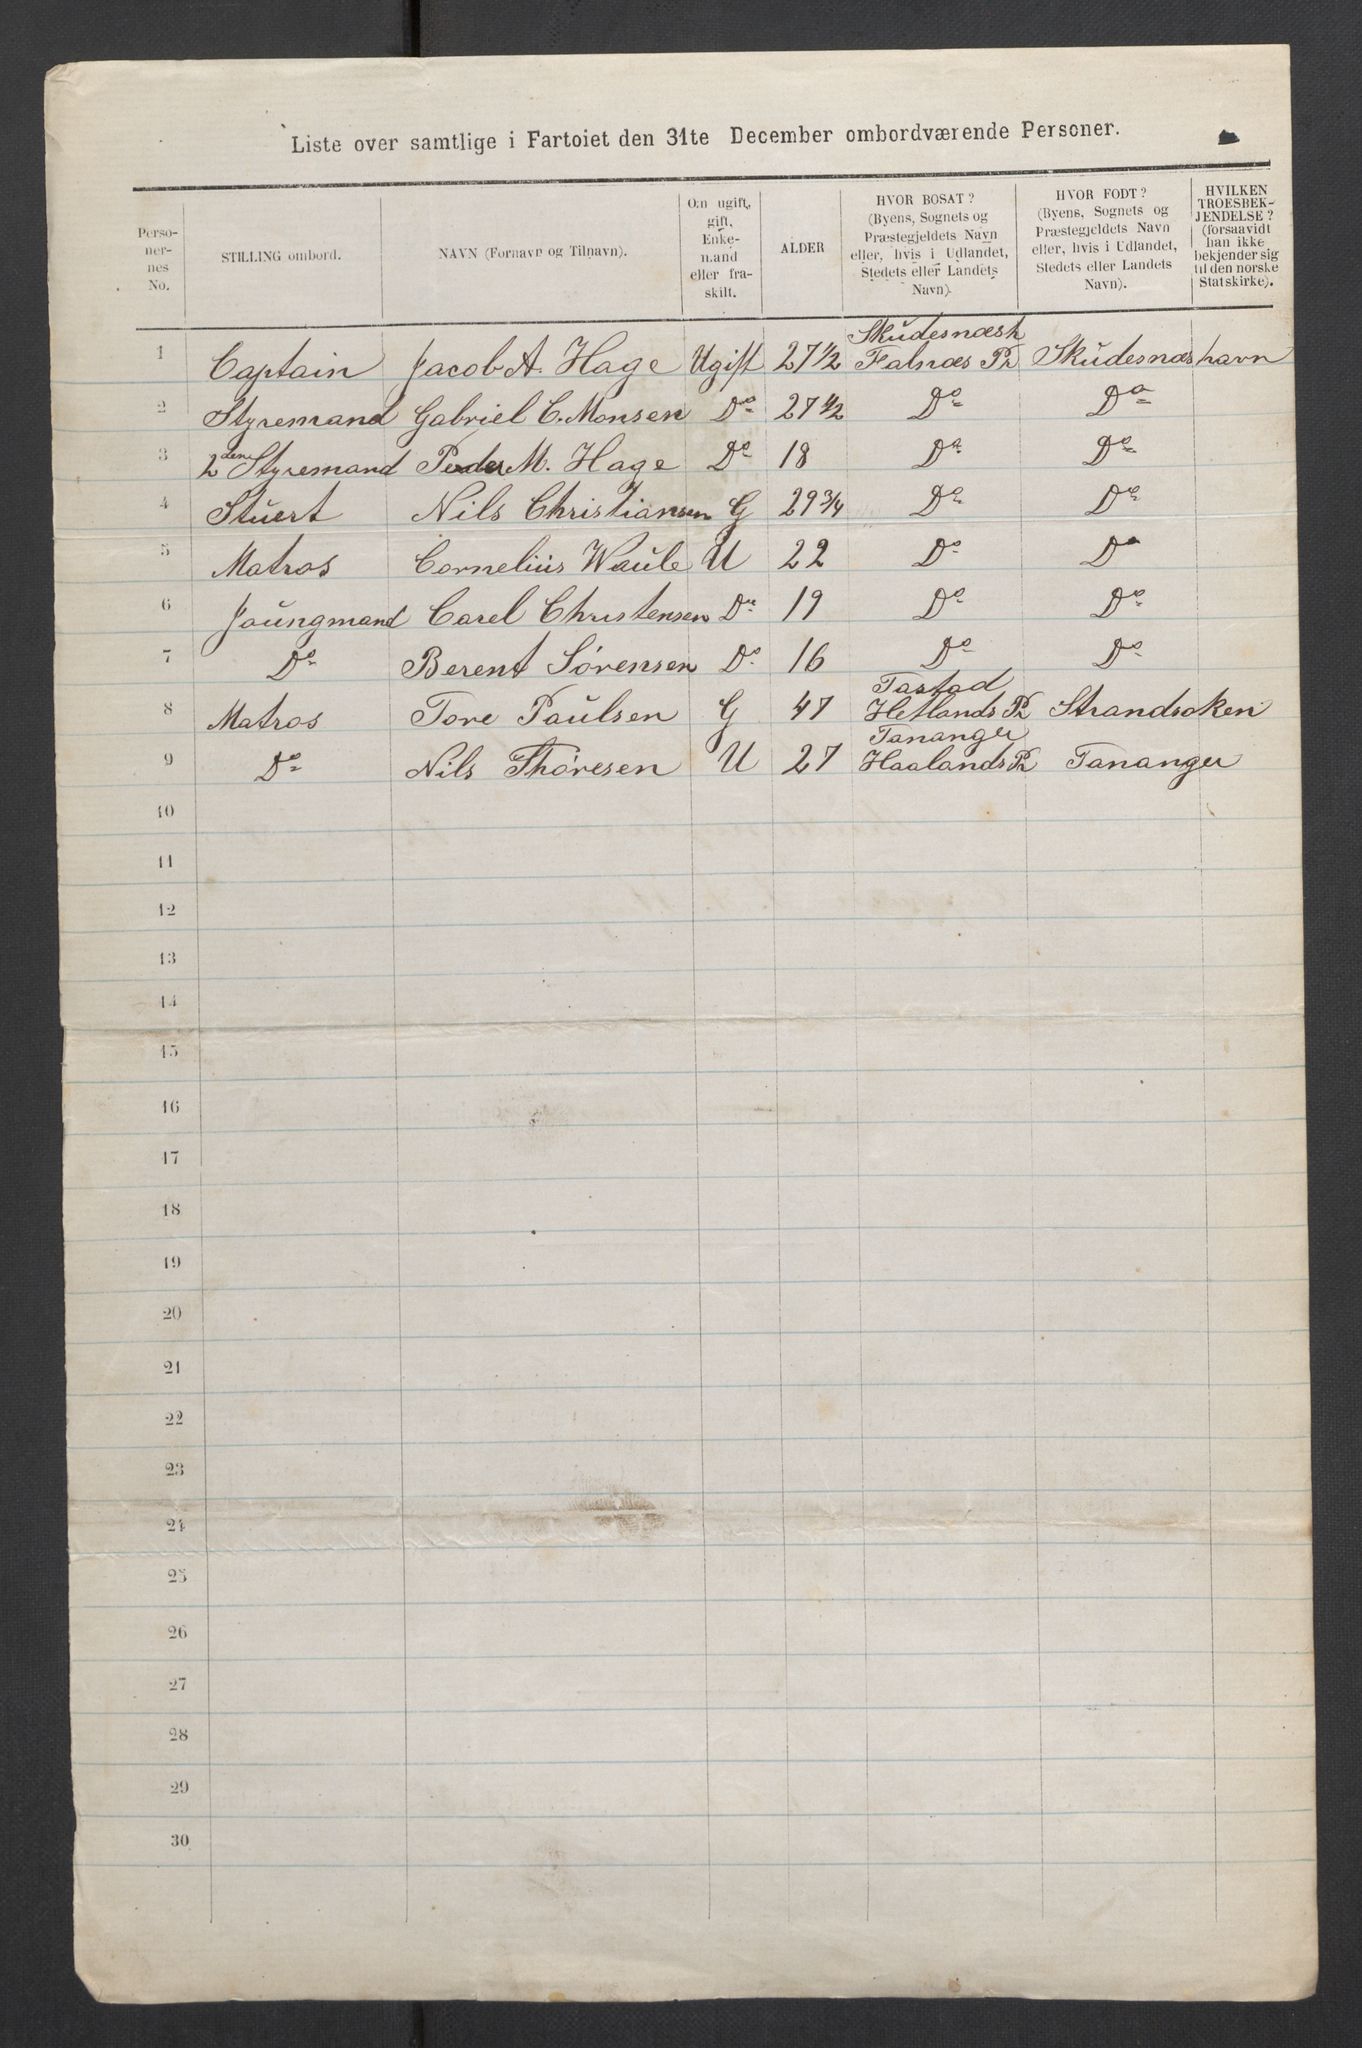 Liste over samtlige i Fartoiet den 31te December ombordværende Personer.
Perso-
ner-
nes
No.
STILLING ombord.
NAVN (Fornavn og Tilnavn).
O:n ugift,
gift,
Enke-
mand
eller fra-
skilt.
ALDER
HVOR BOSAT?
(Byens, Sognets og
Præstegjeldets Navn
eller, hvis i Udlandet,
Stedets eller Landets
Navn).
HVOR FODT?
(Byens, Sognets og
Præstegjeldets Navn
eller, hvis i Udlandet,
Stedets eller Landets
Navn).
HVILKEN
TROESBEK-
JENDELSE?
(forsaavidt
han ikke
bekjender sig
til den norske
Statskirke).
Skudesnæsh
1 Captain Jacob A. Hage Ugift 27 1/2 Falnæs Pr Skudesnæshavn
2 Styremand Gabriel C. Monsen Do 27 1/2 Do Do
3 2den Styremand Peder M. Hage Do 18 Do Do
4 Stuert Nils Christiansen G 29 3/4 Do Do
5 Matros Cornelius Waule U 22 Do Do
6 Joungmand Carel Christensen Do 19 Do Do
7 Do Berent Sørensen Do 16 Do Do
Tastad
8 Matros Tore Paulsen G 47 Hetlands Pr Strandsoken
Tananger
9 Do Nils Thøresen U 27 Haalands Pr Tananger
10
11
12
13
14
15
16
17
18
19
20
21
22
23
24
25
26
27
28
29
30